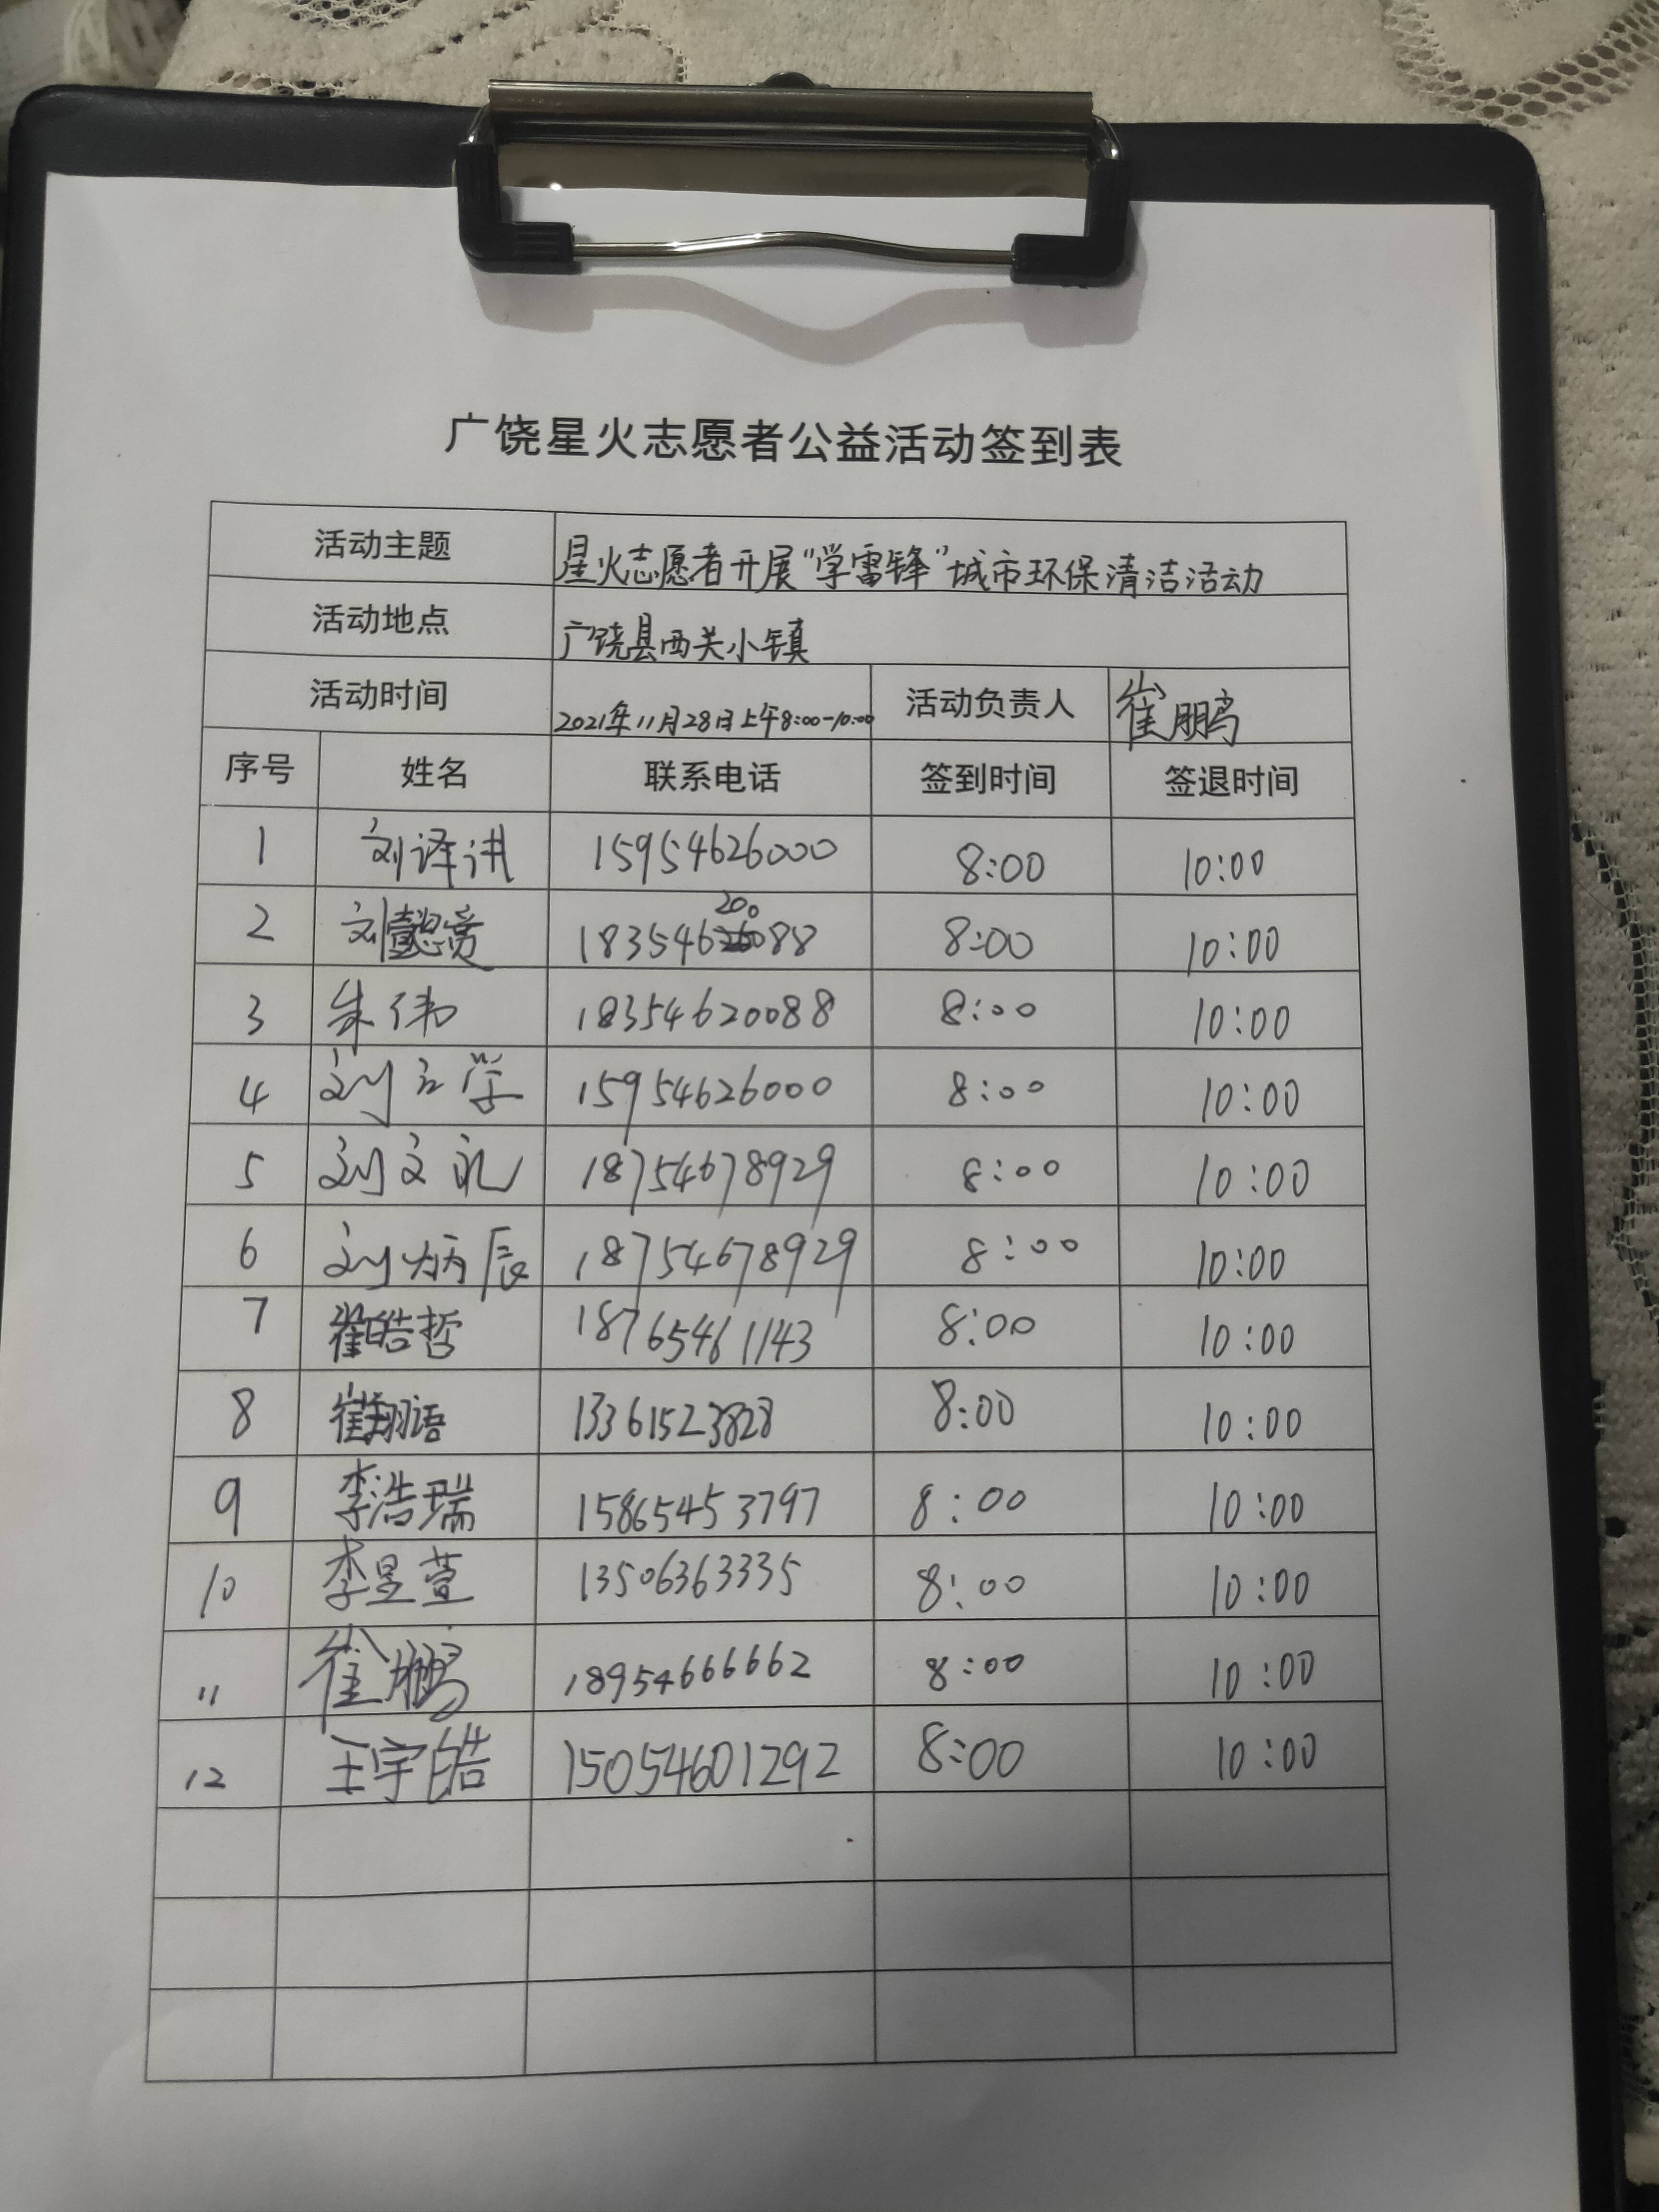 广饶星火志愿者公益活动签到表
活动主题 星火志愿者开展“学雷锋”城市环保清洁活动
活动地点 广饶县西关小镇
活动时间 2021年11月28日上午8:00-10:00 活动负责人 崔鹏
序号 姓名 联系电话 签到时间 签退时间
1 刘译 15954626000 8:00 10:00
2 刘 18354620088 8:00 10:00
3 朱伟 18354620088 8:00 10:00
4 刘立学 15954626000 8:00 10:00
5 刘文礼 18754678929 8:00 10:00
6 刘炳辰 18754678929 8:00 10:00
7 崔皓哲 18765461143 8:00 10:00
8 崔翔语 13361523828 8:00 10:00
9 李浩瑞 15865453797 8:00 10:00
10 李昱萱 13506363335 8:00 10:00
11 崔鹏 18954666662 8:00 10:00
12 王宇皓 15054601292 8:00 10:00